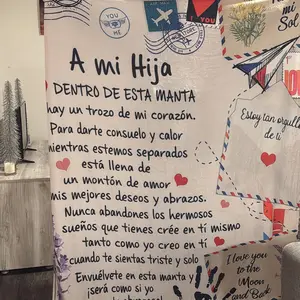 YOU
ME
A mi Hija
DENTRO DE ESTA MANTA
hay un trozo de mi corazón.
Para darte consuelo y calor
mientras estemos separados
está llena de
un montón de amor
mis mejores deseos y abrazos.
Nunca abandones los hermosos
sueños que tienes crée en ti mismo
tanto como yo creo en ti
cuando te sientas triste y solo
Envuélvete en esta manta y
¡será como si yo
Eres mi
Sol
Estoy tan orgull
de ti
I love you
to the
Moon
and Back